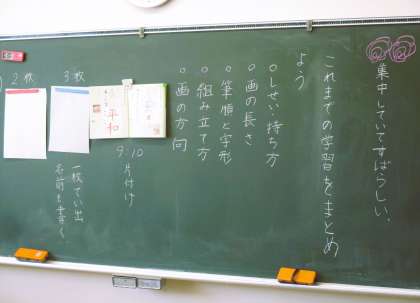 集中していてすばらしい。
これまでの学習をまとめ
よう
○しせい・持ち方
○画の長さ
○筆順と字形
○組み立て方
○画の方向
平和
9:10
片付け
3枚
2枚
一枚てい出
名前も書く